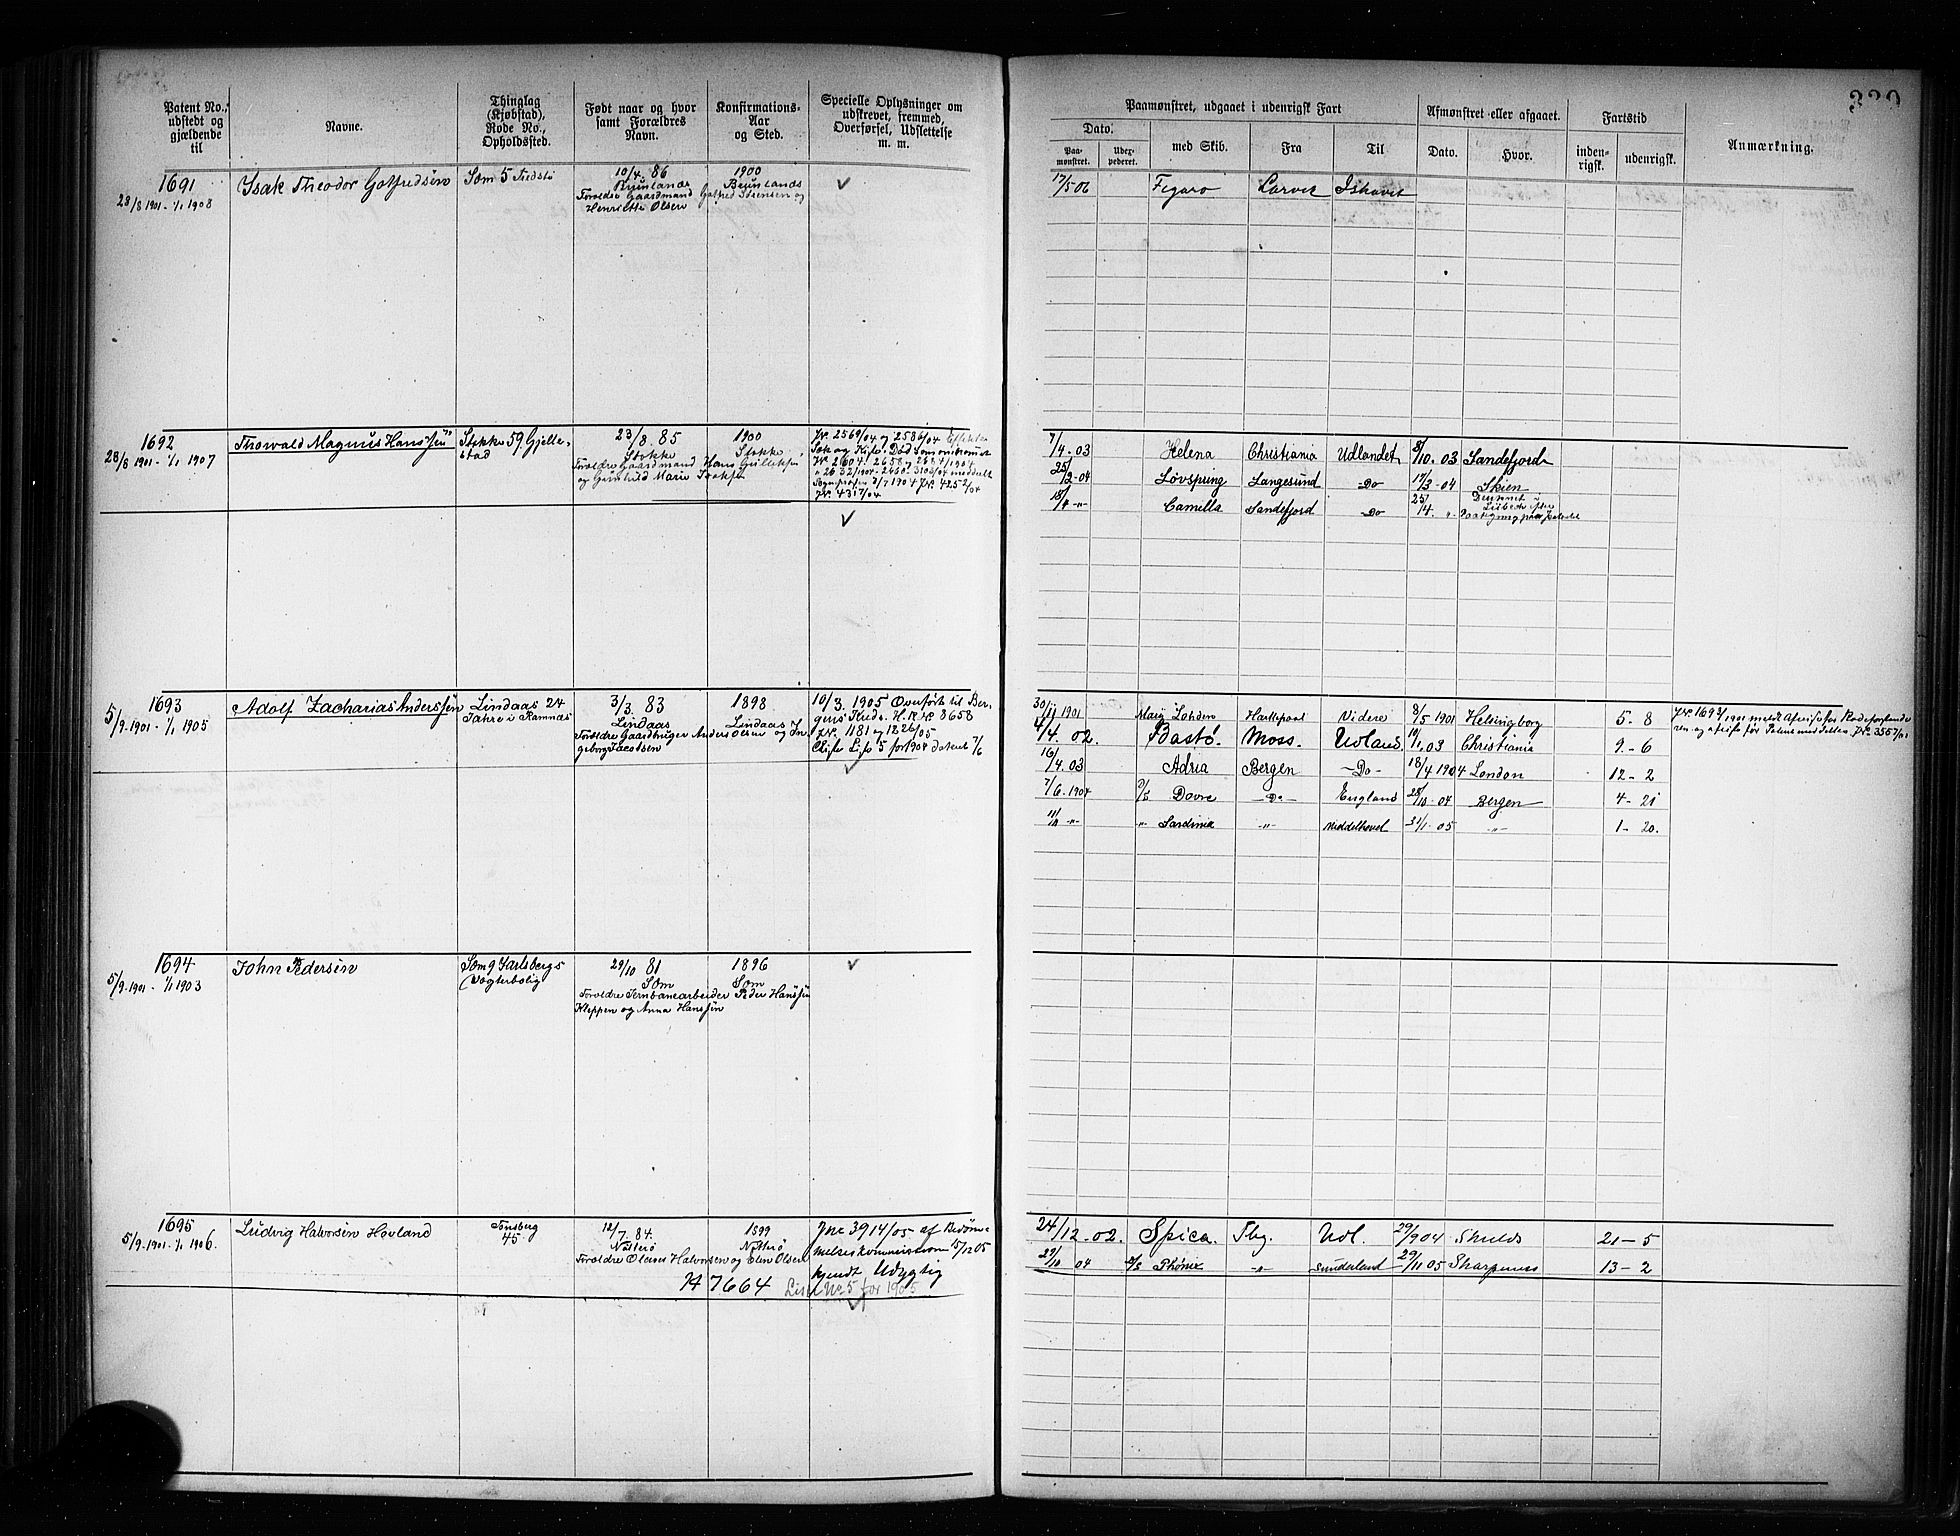 339
Patent No., udstedt og gjældende til
Navne.
Thinglag (Kjøbstad), Rode No., Opholdssted.
Født naar og hvor samt Forældres Navn.
Konfirmations-Aar og Sted.
Specielle Oplysninger om udskrevet, fremmed, Overførsel, Udslettelse m. m.
Paamønstret, udgaaet i udenrigsk Fart
Afmønstret eller afgaaet.
Fartstid
Anmærkning.
Dato.
Paa-mønstret.
med Skib.
Fra
Til
Dato.
Hvor.
inden-rigsk.
udenrigsk.
1691
28/8 1901 - 1/1 1908
Isak Theodor Gotfredsen
Sem 5
10/4. 86
Brunlanæs
1900
Brunlanæs
Forældre Gaardmand Gotfred Isaksen og
Henriette Olsen
17/5 06 Figaro Larvik Ishavet
1692
28/8 1901 - 1/1 1907
Thorvald Magnus Hanssen
Stokke 59 Gjelle-
stad
23/8. 85
Stokke
1900
Stokke
Forældre Gaardmand Hans Gulliksen
og Gunhild Marie Isaksen
Jr. 2569/04 og 2586/04
7/4. 03 Helena Christiania Udlandet 8/10. 03 Sandefjord
25/2 04 Løvspring Langesund Do 17/3 - 04 Skien
18/4 -"- Camilla Sandefjord Do 25/4. "
1693
5/9. 1901 - 1/1 1905
Adolf Zacharias Anderssen
Lindaas 24
Jahre i Ramnæs
3/3. 83
Lindaas
1898
Lindaas
Forældre Gaardbruger Anders Olsen og In-
geborg Jacobsen
10/3. 1905 Overført til Ber-
gens Kreds. H. R. Nr. 8658
Jr. 1181 og 1226/05
Liste 5 for 1904
30/11 1901 Hartlepool Videre 8/5 1901 Helsingborg 5 - 8
1/4. 02. Bastø. Moss. Udland 10/1. 03 Christiania 9 - 6
16/4. 03 Adria Bergen - Do - 18/4 1904 London 12 - 2
7/6. 1904 D/S Dovre - Do - England 28/10 04 Bergen 4 - 21
11/11 -"- " Sardinia -"- Middelhavet 31/1. 05 -"- 1 - 20.
1694
5/9. 1901 - 1/1 1903
John Pedersen
Sem 9 Jarlsbergs
Vogterbolig
29/10 81
Sem
1896
Sem
Forældre Jernbanearbeider Peder Hanssen
Kleppen og Anna Hanssen
1695
5/9. 1901 - 1/1 1906.
Ludvig Halvorsen Hovland
Tønsberg
45
12/7. 84.
Nøtterø
1899
Nøtterø
Forældre Olaus Halvorsen og Elen Olsen
Jnr 3914/05 af Bedøm-
melseskommission 15/12 05
kjendt Udygtig
N 7664 Liste No 5 for 1905
24/12. 02. Spica. Tbg. Udl. 29/9 04 Shields 21 - 5
27/10 04 D/S Phönix " Sunderland 29/11 05 Sharpness 13 - 2